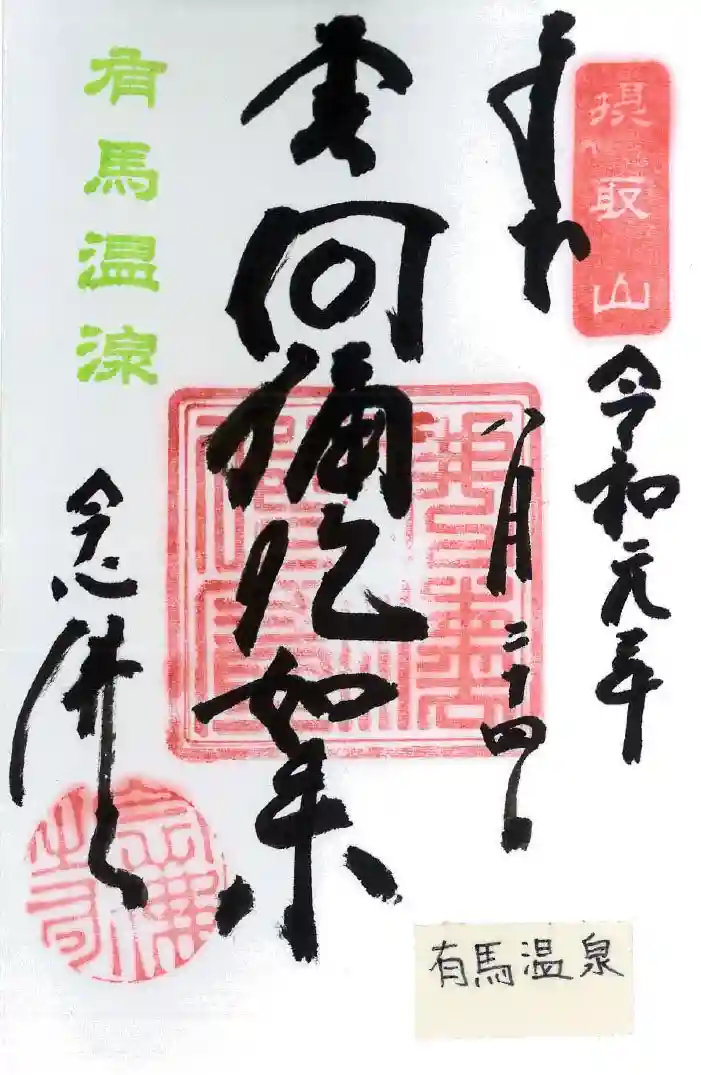 摂取山
奉拝
令和元年
八月二十四日
阿彌陀如来
念佛寺
有馬温泉
有馬温泉